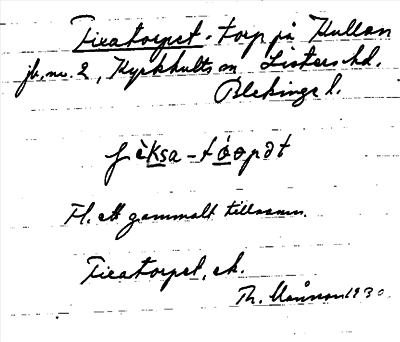 Fixatorpet. torp på Kullan
jb. nr. 2, Kyrkhults sn Listers hd.
Blekinge l.
fèksa-tóopət
Fl. ett gammalt tillnamn.
Fixatorpet, ek.
Th. Månsson 1930